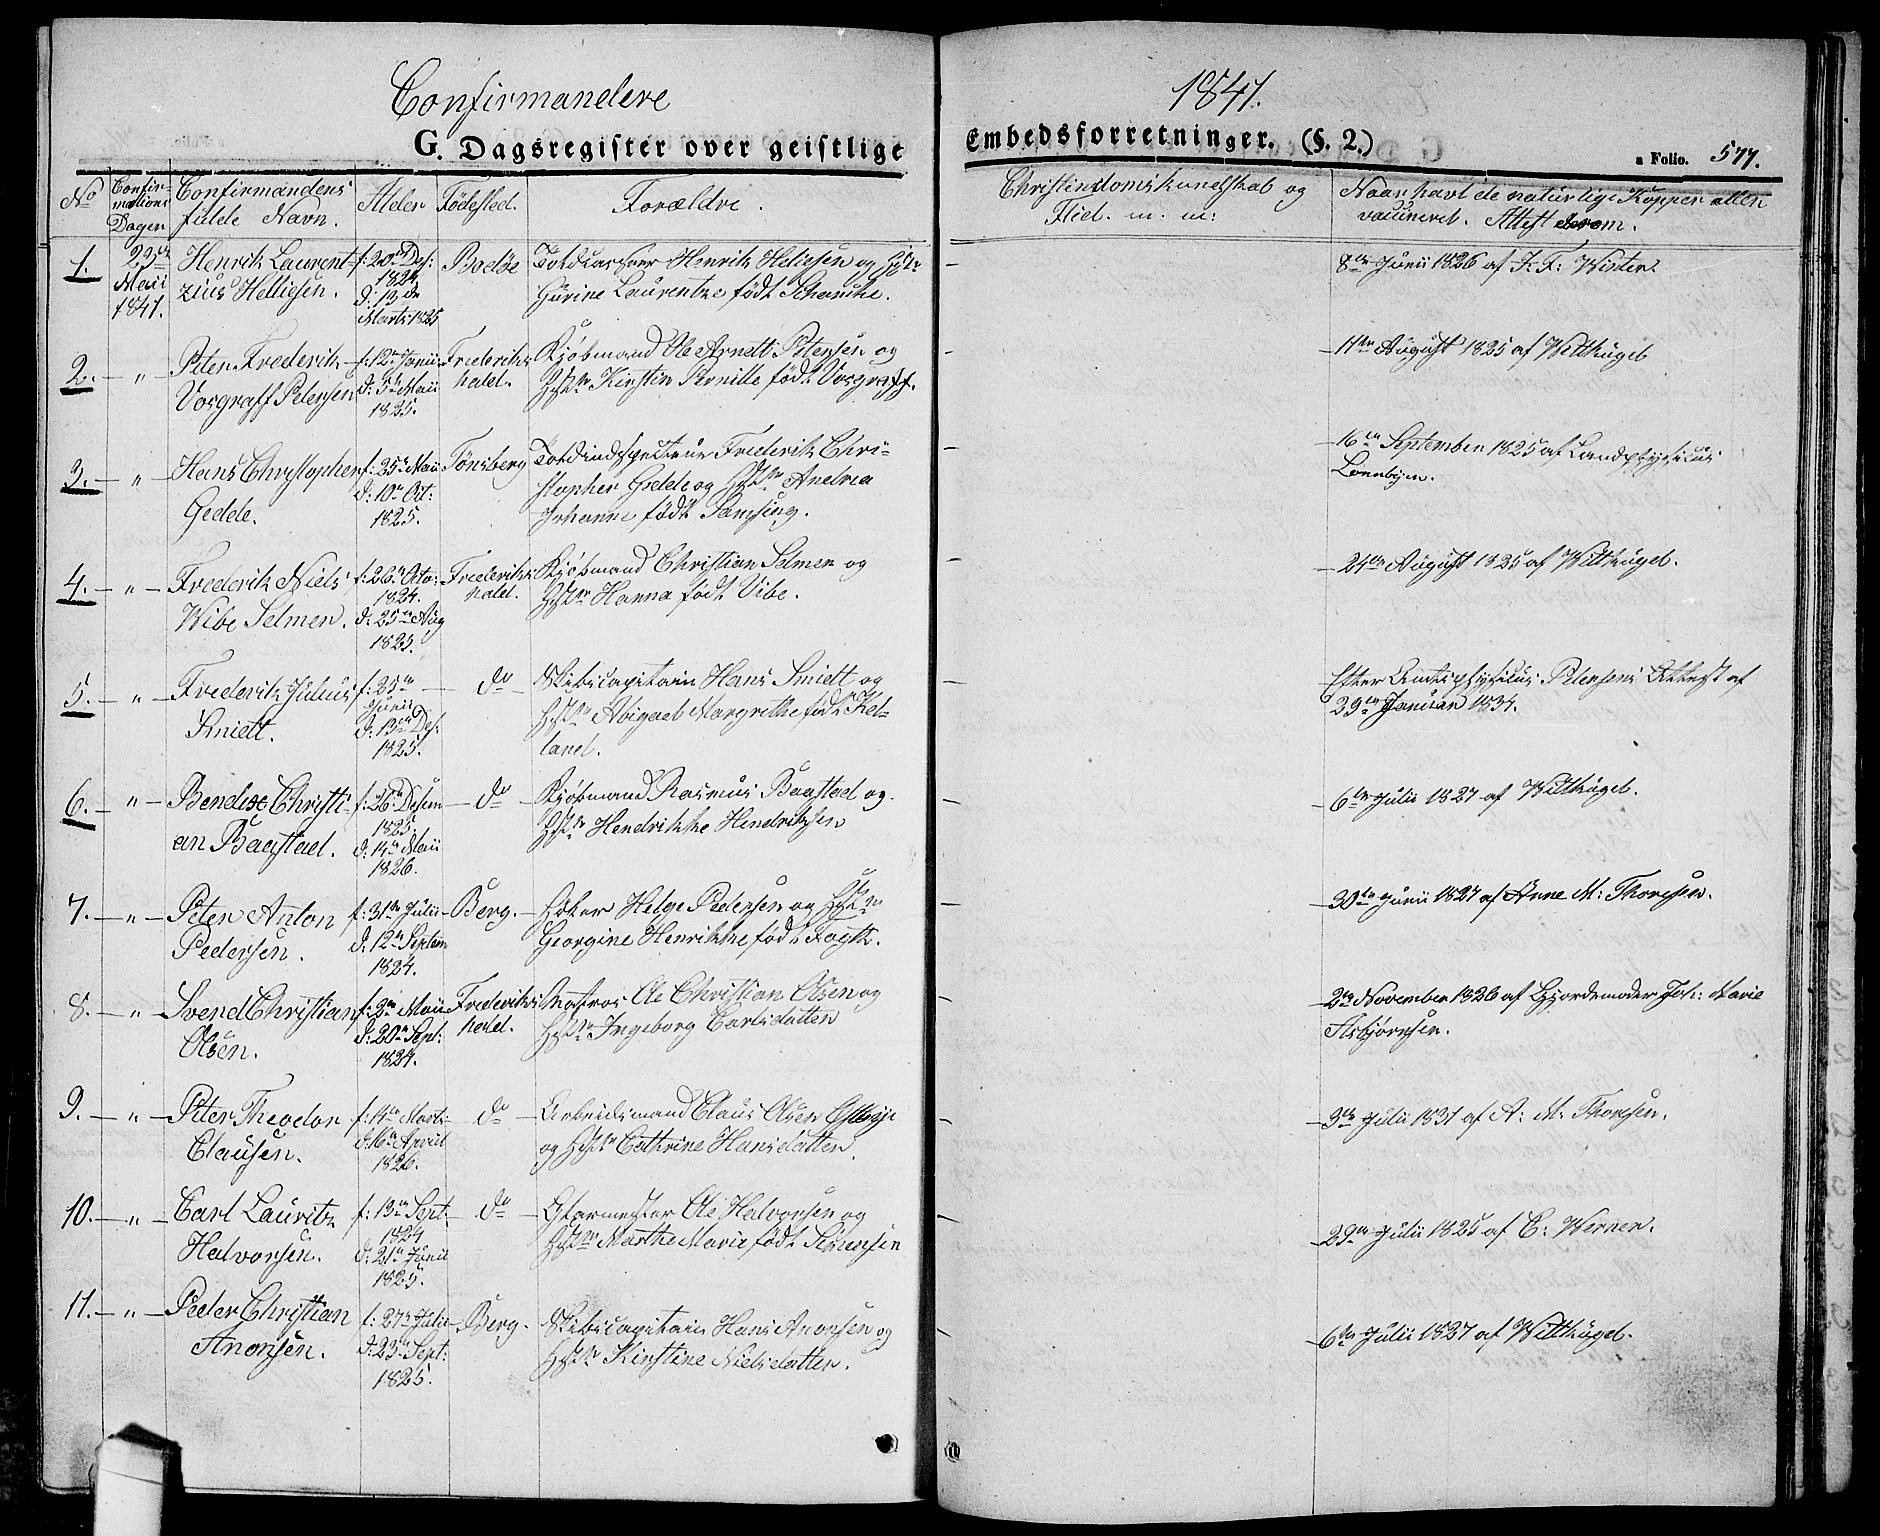 Confirmandere 1841.
G. Dagsregister over geistlige Embedsforretninger. (§. 2.) a Folio. 577.
No
Confirmations Dagen
Confirmandens fulde Navn.
Alder
Fødested.
Forældre.
Christendomskundskab og Flid. m. m:
Naar havt de naturlige Kopper eller vaccineret. Attest derom.
1.
23de Maii 1841.
Henrik Laurent-
zius Helliesen.
f: 20de Des:
1824
d: 13de
Marts 1825
Bodøe
Toldcasserer Henrik Heliesen og Hst:
Gurine Laurentze født Schanche.
8de Junii 1826 af F. F: Wister.
2. – " –
Peter Frederik
Vosgraff Petersen
f: 12te Janii
d: 5te Maii
1825.
Frederiks
hald.
Kjøbmand Ole Arnett Petersen og
Hst Kirstin Pernille født Vosgraff.
11te August 1825 af Witthugel
3. – " –
Hans Christopher
Gedde.
f: 25de Maii
d: 10de Oct:
1825.
Tønsberg
Toldinspecteur Frederik Chri-
stopher Gedde og Hst Andrea
Johanne født Samsing.
16de September 1825 af Landphysicus
4. – " –
Frederik Niels
Wibe Selmer.
f: 26de Octo:
1824.
d: 25de Aug
1825.
Frederiks
hald.
Kjøbmand Christian Selmer og
Hst Hanna født Vibe.
24de August 1825 af Witthugel.
5. – " –
Frederik Julius
Smidt.
f: 25de
Junii
d: 13de Des:
1825.
do
Skibscapitain Hans Smidt og
Hst Abigael Margrethe født Kel-
land.
Efter Amtsphysicus Petersens Attest af
29de Januar 1834.
6. – " –
Bendix Christi-
an Baastad.
f: 26de Desem
1825.
d: 14de Maii
1826.
do
Kjøbmand Rasmus Baastad og
Hst Hendrikke Hendriksen
6te Julii 1827 af Witthugel.
7. – " –
Peter Anton
Pedersen.
f: 31te Julii
d: 12te Septem
1824.
Berg.
Høker Helge Pedersen og Hst
Georgine Henrikke født Fogth.
30te Junii 1827 af Anne M: Thoresen.
8. – " –
Svend Christian
Olsen.
f: 2den Maii
d: 20de Sept:
1824.
Frederiks
hald.
Matros Ole Christian Olsen og
Hst Ingeborg Carlsdatter
2den November 1826 af Gjordemoder Joh: Marie
Asbjørnsen.
9. – " –
Peter Theodor
Clausen.
f: 14de Marts
d: 16de April
1826.
do
Arbeidsmand Claus Olsen
og Hst Cathrine Hansdatter.
3die Julii 1831 af A: M: Thoresen.
10. – " –
Carl Lauritz
Halvorsen.
f: 13de Sept
1824
d: 21de Junii
1825.
do
Glarmester Ole Halvorsen og
Hst Marthe Marie født Simensen
29de Julii 1825 af C: Werner.
11. – " –
Peder Christian
Anonsen.
f: 27de Julii
d: 23de Sept:
1825.
Berg.
Skibscapitain Hans Anonsen og
Hst Kirstine Nielsdatter.
6te Julii 1827 af Witthugel.